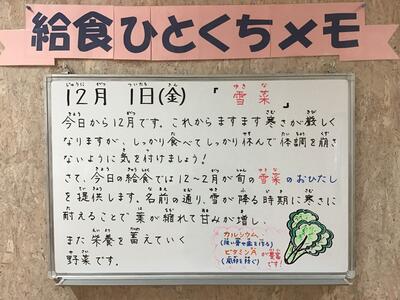 給食ひとくちメモ
12月 1日(金) 「 雪菜 」
今日から12月です。これからますます寒さが厳しく
なりますが、しっかり食べてしっかり休んで体調を崩さ
ないように気を付けましょう!
さて、今日の給食では12～2月が旬の雪菜のおひたし
を提供します。名前の通り、雪が降る時期に寒さに
耐えることで葉が縮れて甘みが増し、
また栄養を蓄えていく
野菜です。
カルシウム
(強い骨や歯を作る)
ビタミンA
(風邪を防ぐ)
が豊富です!